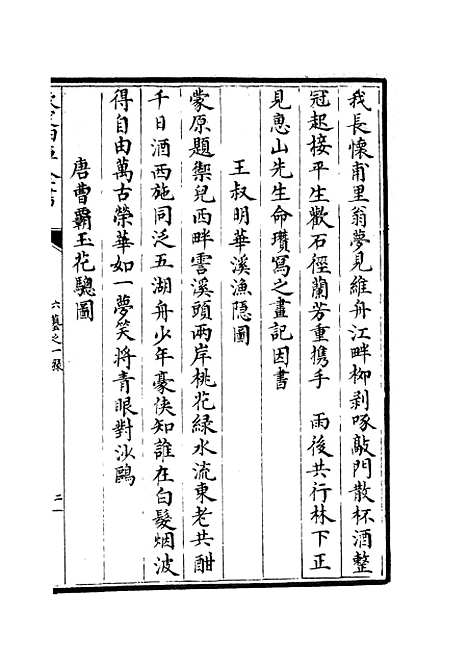 我長懷甫里翁夢見維舟江畔栁剥啄敲門散杯酒整
冠起接平生歡石徑蘭芳重攜手　雨後共行林下正
見惠山先生命瓚寫之畫記因書
王叔明華溪漁隱圖
蒙原題禦兒西畔霅溪頭兩岸桃花緑水流東老共酣
千日酒西施同泛五湖舟少年豪俠知誰在白髮烟波
得自由萬古榮華如一夢笑將青眼對沙鷗
唐曹霸玉花驄圖
六藝之一錄
二